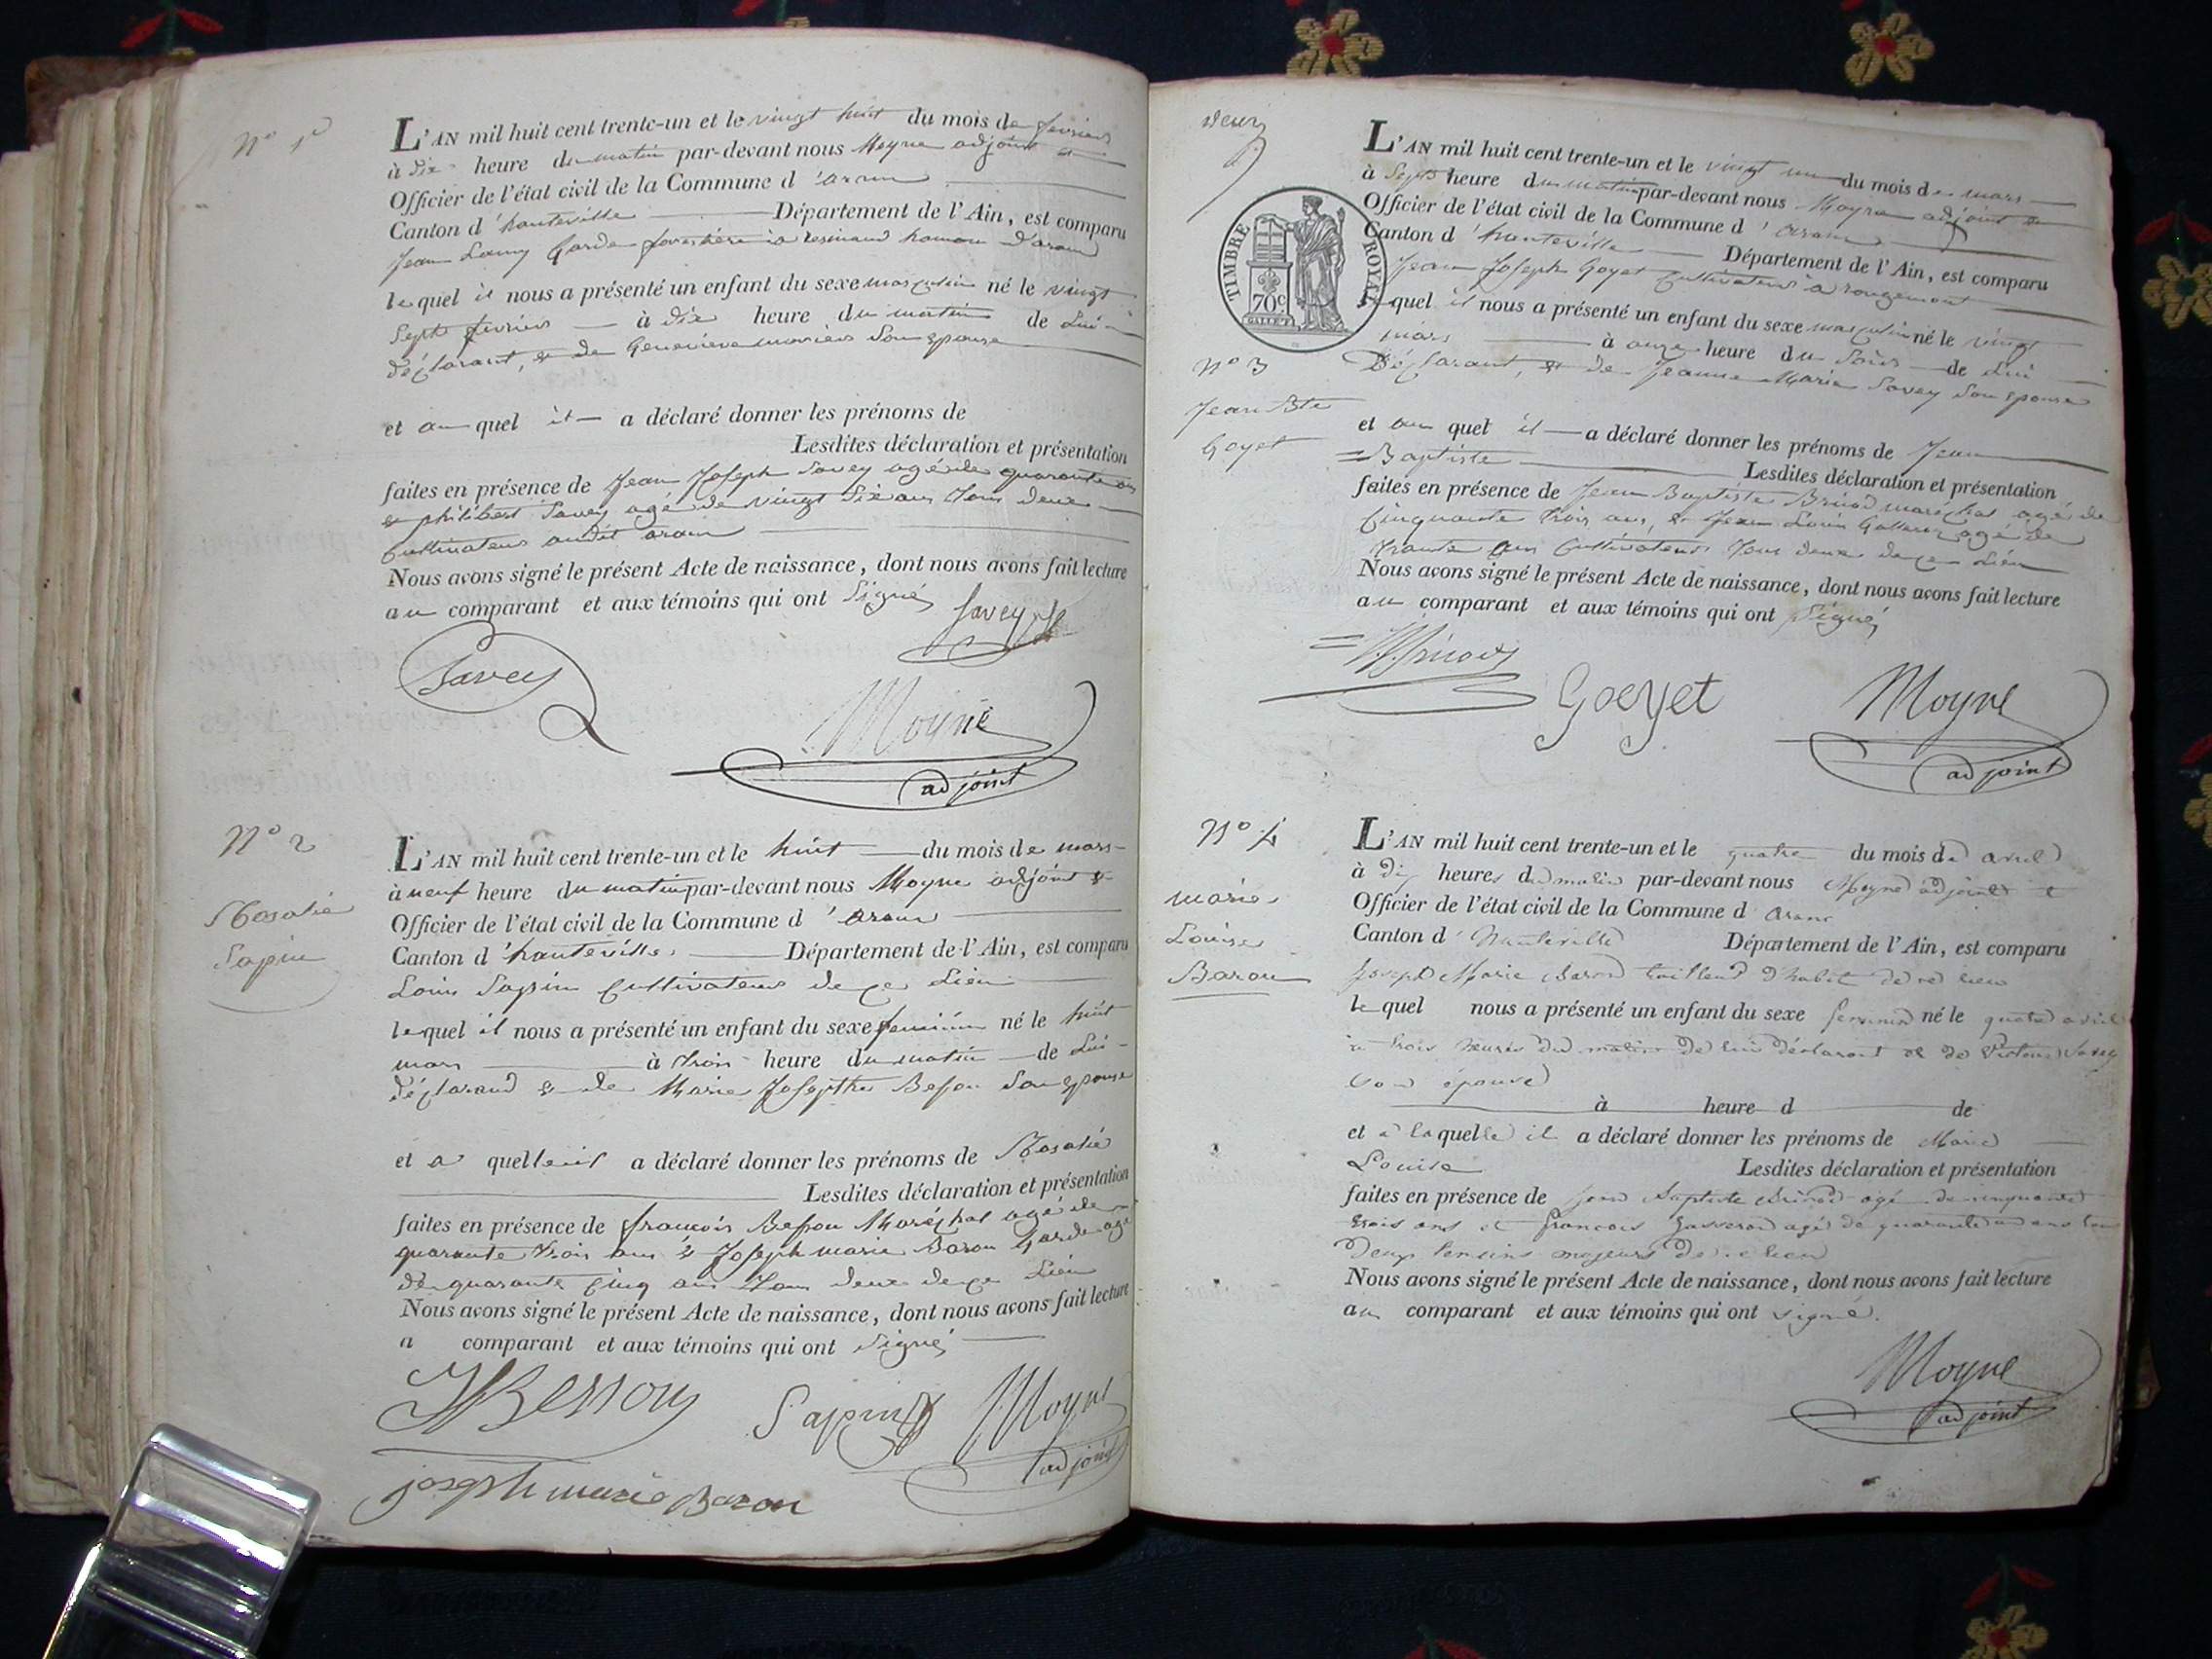 N° 1er
L'AN mil huit cent trente-un et le vingt huit du mois de fevrier
à dix heure du matin par-devant nous Moyne adjoint et
Officier de l'état civil de la Commune d'aranc
Canton d'hauteville Département de l'Ain, est comparu
Jean Garde forestière à hameau d'aranc
lequel il nous a présenté un enfant du sexe masculin né le vingt
Sept fevrier à dix heure du matin de Lui
déclarant, et de Genevieve Son epouse
et au quel il a déclaré donner les prénoms de
Lesdites déclaration et présentation
faites en présence de Jean Joseph Savey agé de quarante ans
& philibert Savey agé de vingt Six ans tous deux
Cultivateurs audit aranc
Nous avons signé le présent Acte de naissance, dont nous avons fait lecture
au comparant et aux témoins qui ont Signé
Savey
Savey
Moyne
adjoint
N° 2
Rosalie
Sapin
L'AN mil huit cent trente-un et le huit du mois de mars
à neuf heure du matin par-devant nous Moyne adjoint &
Officier de l'état civil de la Commune d'aranc
Canton d'hauteville Département de l'Ain, est comparu
Louis Sapin Cultivateur de ce Lieu
lequel il nous a présenté un enfant du sexe feminin né le huit
mars à trois heure du matin de Lui
déclarand & de Marie Josephte Besson Son epouse
et a quelle il a déclaré donner les prénoms de Rosalie
Lesdites déclaration et présentation
faites en présence de françois Besson Maréchal agé de
quarante trois ans & Joseph marie Baron Garde agé
de quarante Cinq ans tous deux de ce Lieu
Nous avons signé le présent Acte de naissance, dont nous avons fait lecture
a comparant et aux témoins qui ont Signé
Besson
Sapin
Moyne
adjoint
joseph marie Baron
deux
TIMBRE ROYAL
70c
L'AN mil huit cent trente-un et le vingt un du mois de mars
à Sept heure du matin par-devant nous Moyne adjoint &
Officier de l'état civil de la Commune d'aranc
Canton d'hauteville Département de l'Ain, est comparu
Jean Joseph Goyet Cultivateur à rougemont
lequel il nous a présenté un enfant du sexe masculin né le vingt
mars à onze heure du Soir de Lui
Déclarant, et de Jeanne Marie Savey Son epouse
N° 3
Jean Bte
Goyet
et au quel il a déclaré donner les prénoms de Jean
=Baptiste Lesdites déclaration et présentation
faites en présence de Jean Baptiste maréchal agé de
Cinquante trois ans, & Jean Louis agé de
trante ans Cultivateurs tous deux de ce Lieu
Nous avons signé le présent Acte de naissance, dont nous avons fait lecture
au comparant et aux témoins qui ont Signé
Goeyet
Moyne
adjoint
N° 4
marie
Louise
Baron
L'AN mil huit cent trente-un et le quatre du mois de avril
à dix heures du matin par-devant nous Moyne adjoint et
Officier de l'état civil de la Commune d aranc
Canton d'Hauteville Département de l'Ain, est comparu
Joseph Marie Baron tailleur d'habit de ce lieu
lequel nous a présenté un enfant du sexe feminin né le quatre avril
à trois heures du matin de lui déclarant et de Savey
son épouse
à heure d de
et à laquelle il a déclaré donner les prénoms de Marie
Louise Lesdites déclaration et présentation
faites en présence de Jean Baptiste agé de cinquante
trois ans et francois agé de quarante ans tous
deux temoins majeurs de ce lieu
Nous avons signé le présent Acte de naissance, dont nous avons fait lecture
au comparant et aux témoins qui ont signé.
Moyne
adjoint